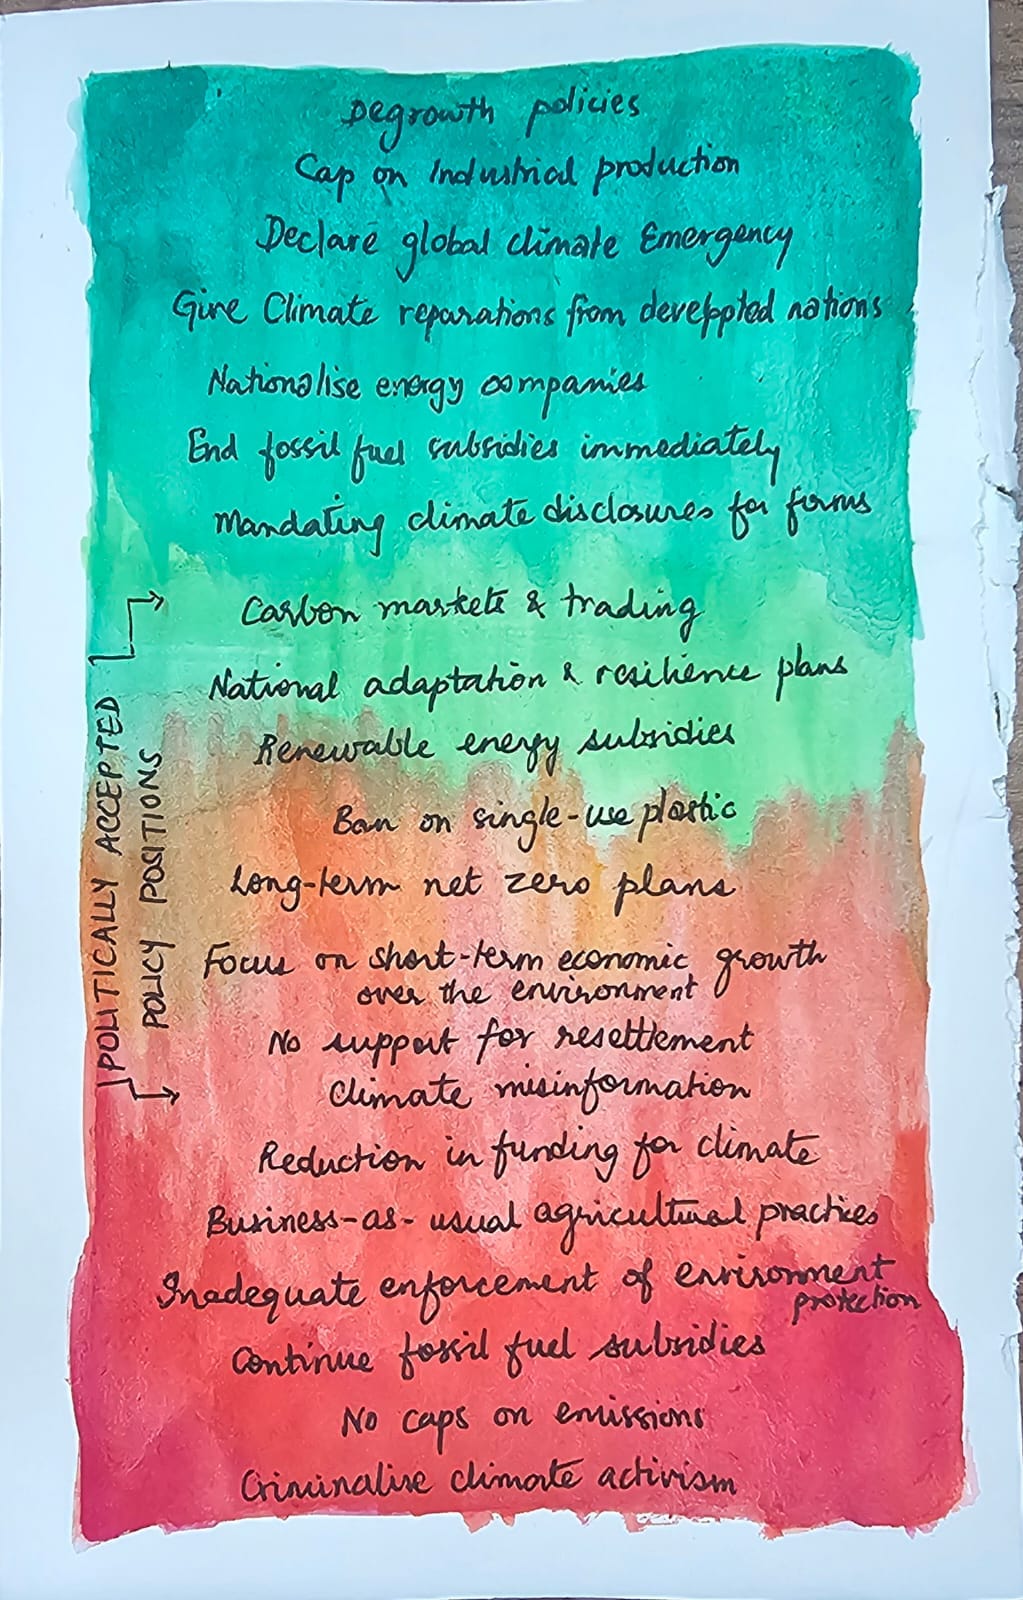 Degrowth policies
Cap on Industrial production
Declare global climate Emergency
Give Climate reparations from developted nations
Nationalise energy companies
End fossil fuel subsidies immediately
Mandating climate disclosures for firms
Carbon markets & trading
National adaptation & resilience plans
Renewable energy subsidies
Ban on single-use plastic
Long-term net zero plans
Focus on short-term economic growth
over the environment
No support for resettlement
Climate misinformation
Reduction in funding for climate
Business-as-usual agricultural practices
Inadequate enforcement of environment
protection
Continue fossil fuel subsidies
No caps on emissions
Criminalise climate activism
POLITICALLY ACCEPTED
POLICY POSITIONS